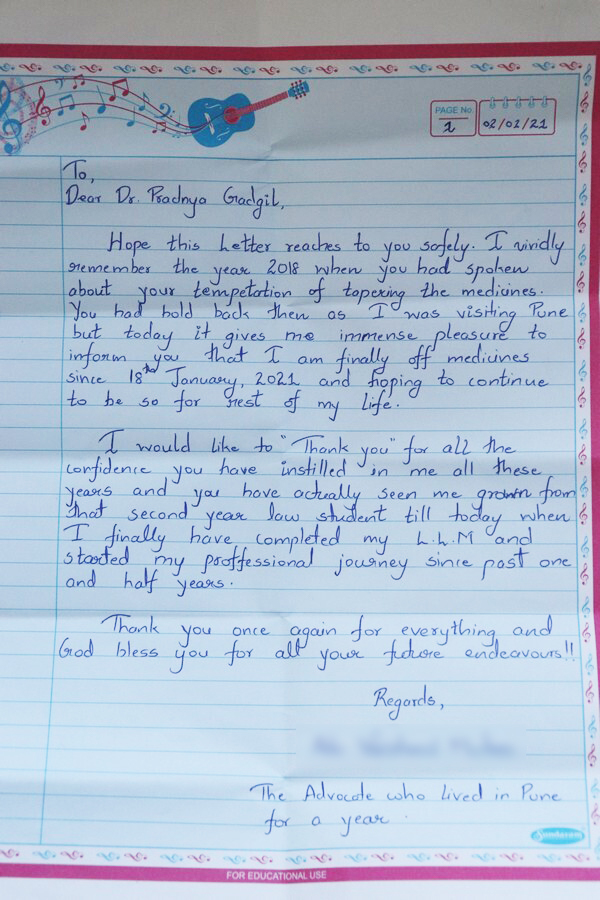 PAGE No.
1
02/02/21
To,
Dear Dr. Pradnya Gadgil,
Hope this letter reaches to you safely. I vividly
remember the year 2018 when you had spoken
about your temptation of tapering the medicines.
You had hold back then as I was visiting Pune
but today it gives me immense pleasure to
inform you that I am finally off medicines
since 18th January, 2021 and hoping to continue
to be so for rest of my life.
I would like to "Thank you" for all the
confidence you have instilled in me all these
years and you have actually seen me grown from
that second year law student till today when
I finally have completed my L.L.M and
started my proffessional journey since past one
and half years.
Thank you once again for everything and
God bless you for all your future endeavours!!
Regards,
The Advocate who lived in Pune
for a year.
Sundaram
FOR EDUCATIONAL USE